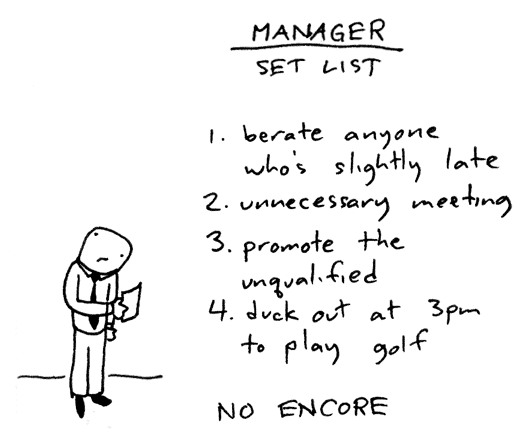 MANAGER
SET LIST
1. berate anyone
who's slightly late
2. unnecessary meeting
3. promote the
unqualified
4. duck out at 3pm
to play golf
NO ENCORE